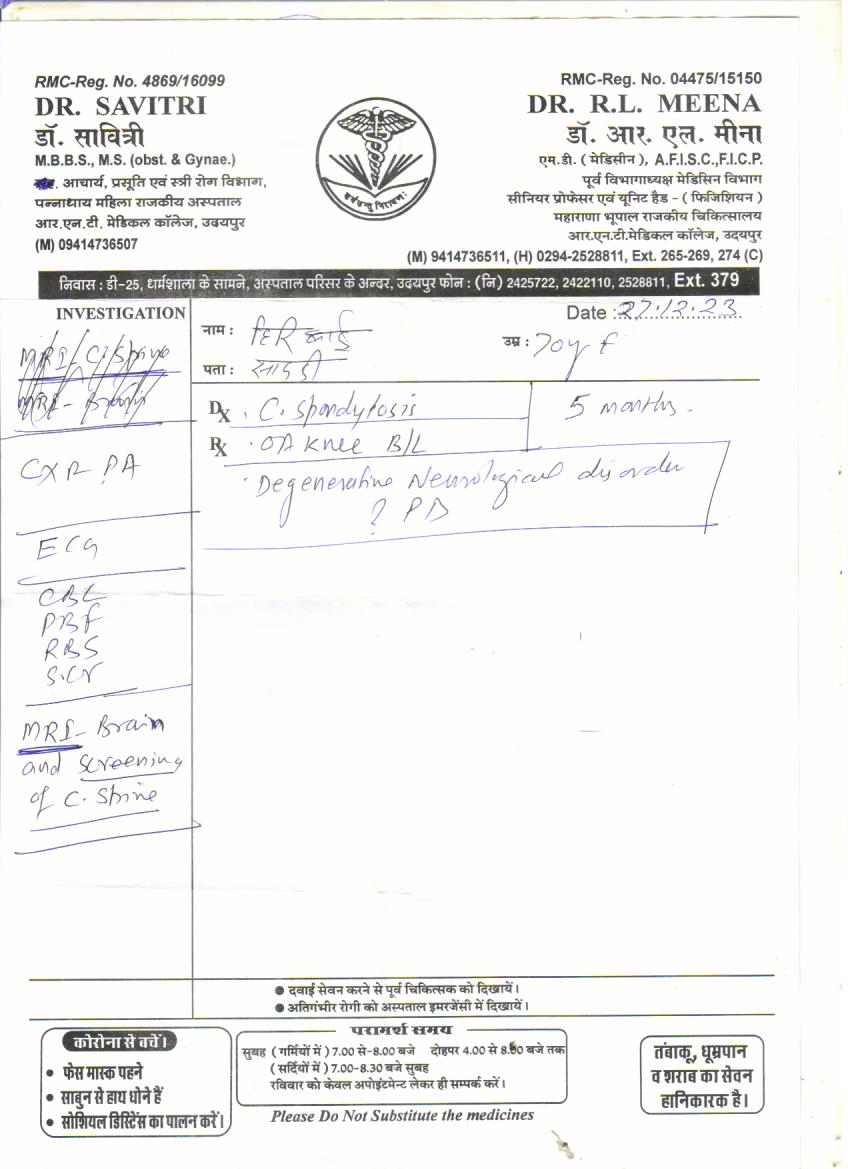 RMC-Reg. No. 4869/16099
DR. SAVITRI
डॉ. सावित्री
M.B.B.S., M.S. (obst. & Gynae.)
. आचार्य, प्रसूति एवं स्त्री रोग विभाग,
पन्नाधाय महिला राजकीय अस्पताल
आर.एन.टी. मेडिकल कॉलेज, उदयपुर
(M) 09414736507
सर्वेसन्तु निरामयः
RMC-Reg. No. 04475/15150
DR. R.L. MEENA
डॉ. आर. एल. मीना
एम.डी. ( मेडिसीन ), A.F.I.S.C.,F.I.C.P.
पूर्व विभागाध्यक्ष मेडिसिन विभाग
सीनियर प्रोफेसर एवं यूनिट हैड - ( फिजिशियन )
महाराणा भूपाल राजकीय चिकित्सालय
आर.एन.टी.मेडिकल कॉलेज, उदयपुर
(M) 9414736511, (H) 0294-2528811, Ext. 265-269, 274 (C)
निवास : डी-25, धर्मशाला के सामने, अस्पताल परिसर के अन्दर, उदयपुर फोन : (नि) 2425722, 2422110, 2528811, Ext. 379
INVESTIGATION
Date : 27.12.23
नाम :
उम्र : 70y f
पता :
MRI / C. Spine
MRI - Brain
CXR PA
ECG
CBC
PBF
RBS
S.Cr
MRI - Brain
and screening
of C. Spine
Dx . C. Spondylosis
5 months.
Rx . OA Knee B/L
. Degenerative Neurological disorder
? PD
● दवाई सेवन करने से पूर्व चिकित्सक को दिखायें।
● अतिगंभीर रोगी को अस्पताल इमरजेंसी में दिखायें।
कोरोना से बचें।
● फेस मास्क पहने
● साबुन से हाथ धोने हैं
● सोशियल डिस्टेंस का पालन करें।
परामर्श समय
सुबह ( गर्मियों में ) 7.00 से-8.00 बजे दोहपर 4.00 से 8.00 बजे तक
( सर्दियों में ) 7.00-8.30 बजे सुबह
रविवार को केवल अपोइंटमेन्ट लेकर ही सम्पर्क करें।
Please Do Not Substitute the medicines
तंबाकू, धूम्रपान
व शराब का सेवन
हानिकारक है।